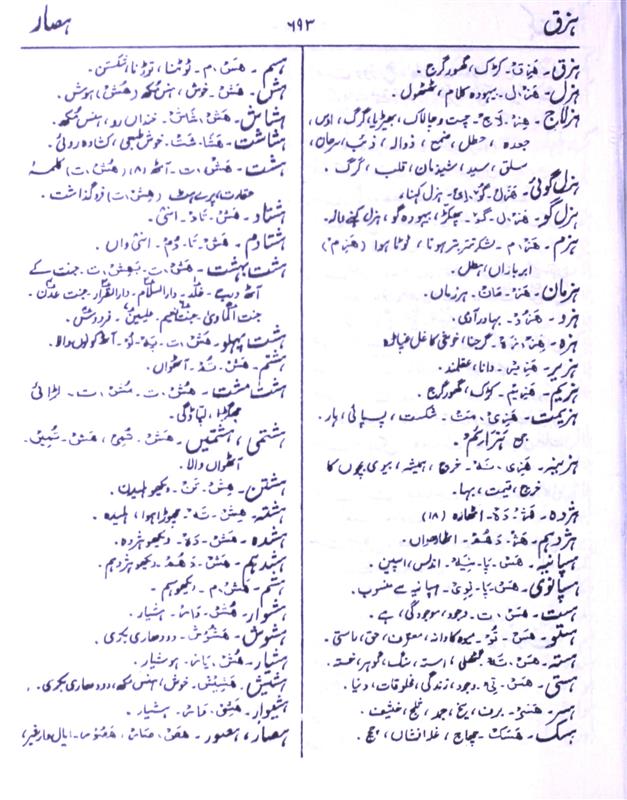 ہزق
۶۹۳
ہصار
ہزق۔ ہَیزَق۔ کڑک، گھور گرج۔
ہزل۔ ہَزْل۔ بیہودہ کلام، ٹھٹھول۔
ہزلاج۔ ہِزْلَاج۔ چست و چالاک، بھیڑیا، گرگ، اوس،
جعدہ، ذوالہ، ذئب، سرحان،
سلق، سید، شیذمان، قلب، گرگ۔
ہزل گوئی۔ ہَزْل۔ گوئی۔ ہزل کہنا۔
ہزل گو۔ ہَزْل۔ گو۔ پھکڑ، بیہودہ گو، ہزل کہنے والا۔
ہزم۔ ہَزْم۔ شکر تتر بتر ہونا، ٹوٹا ہوا (ہَزِم)
ابر باراں، ہطل۔
ہزمان۔ ہَزْ۔ مَانْ۔ ہرزماں۔
ہزد۔ بہادر آدمی۔
ہزہ۔ گرجنا، خوشی کا غل غپاڑہ
ہزیر۔ دانا، عقلمند۔
ہزیم۔ ہَزِیم۔ کڑک، گھور گرج۔
ہزیمت۔ ہَزِی۔ مَت۔ شکست، پسپائی، ہار۔
جمع ہَزَائِم۔
ہزینہ۔ ہَزِی۔ نَہ۔ خرچ، ہمیشہ، بیوی بچوں کا
خرچ، قیمت، بہا۔
ہژدہ۔ ہَژْ۔ دَہ۔ اٹھارہ (۱۸)
ہژدہم۔ ہَژْ۔ دَہُم۔ اٹھارھواں۔
ہسپانیہ۔ ہَسْ۔ پَا۔ نِیَہ۔ اندلس، اسپین۔
ہسپانوی۔ ہَسْ۔ پَا۔ نِوِی۔ ہسپانیہ سے منسوب۔
ہست۔ ہَسْ۔ ت۔ وجود، موجودگی، ہے۔
ہستو۔ ہَسْ۔ تُو۔ میوہ کا دانہ، معترف، حق، راستی۔
ہستہ۔ ہَسْ۔ تَہ۔ گٹھلی، استہ، سنگ، گوہر، خستہ۔
ہستی۔ ہَسْ۔ تِی۔ وجود، زندگی، مخلوقات، دنیا۔
ہسر۔ ہَسَر۔ برف، یخ، جمد، ثلج، خشیف۔
ہسک۔ ہَسَک۔ چھاج، غلہ افشاں، پچ۔
ہسم۔ ہَسْ۔ م۔ ٹوٹنا، توڑنا، شکستن۔
ہش۔ ہَشْ۔ خوش، ہنس مکھ (ہُش)، ہوش۔
ہشاش۔ ہَشْ۔ شَاشْ۔ خنداں رو، ہنس مکھ۔
ہشاشت۔ ہَشَا۔ شَتْ۔ خوش طبعی، کشادہ روئی۔
ہشت۔ ہَشْ۔ ت۔ آٹھ (۸) (ہُشْ۔ ت) کلمۂ
حقارت، پرے ہٹ (ہِشْ۔ ت) فروگذاشت۔
ہشتاد۔ ہَشْ۔ تَاد۔ اسّی۔
ہشتادم۔ ہَشْ۔ تَا۔ دُم۔ اسّی واں۔
ہشت بہشت۔ ہَشْ۔ ت۔ بَہِشْ۔ ت۔ جنت کے
آٹھ درجے۔ خلد۔ دارالسلام۔ دارالقرار۔ جنت عدن۔
جنت الماویٰ۔ جنت نعیم۔ علیین۔ فردوس۔
ہشت پہلو۔ ہَشْ۔ ت۔ پَہ۔ لُو۔ آٹھ کونوں والا۔
ہشتم۔ ہَشْ۔ تُم۔ آٹھواں۔
ہشت مشت۔ ہُشْ۔ ت۔ مُشْ۔ ت۔ لڑائی
جھگڑا، لپاڈگی۔
ہشتمی، ہشتمیں۔ ہَشْ۔ تُمِی، ہَشْ۔ تُمِیں۔
آٹھواں والا۔
ہشتن۔ ہِشْ۔ تَن۔ دیکھو ہلیدن۔
ہشتہ۔ ہِشْ۔ تَہ۔ چھوڑا ہوا، ہلیدہ۔
ہشدہ۔ ہَشْ۔ دَہ۔ دیکھو ہژدہ۔
ہشدہم۔ ہَشْ۔ دَہُم۔ دیکھو ہژدہم۔
ہشم۔ ہَشْ۔ م۔ دیکھو ہسم۔
ہشوار۔ ہُشْ۔ وَار۔ ہشیار۔
ہشوش۔ ہَشُوش۔ دودھاری بکری۔
ہشیار۔ ہُشْ۔ یَار۔ ہوشیار۔
ہشیش۔ ہَشِیشْ۔ خوش، ہنس مکھ، دودھاری بکری۔
ہشیوار۔ ہُشِیْ۔ وَار۔ ہشیار۔
ہصار، ہصور۔